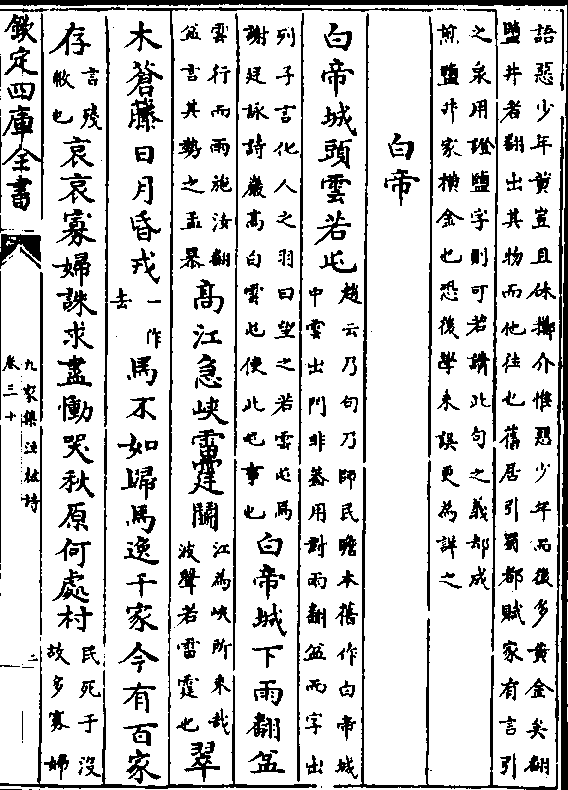 語惡少年黄豈且休擲介惟惡少年而後多黄金矣翻
鹽井者翻出其物而他往也舊居引蜀都賦家有言引
之泉用證鹽字則可若講此句之義却成
煎鹽非家橫金也恐後學未誤更為詳之
白帝
白帝城頭雲若屯
趙云乃句乃師民瞻本舊作白帝城
中雲出門非蓋用對雨翻盆而字出
列子言化人之羽曰望之若雲屯焉
謝廷詠詩巖高白雲屯使此屯事也
白帝城下雨翻盆
雲行而雨施汝翻
盆言其勢之盂暴
高江急峽雷霆鬭
江為峽所束哉
波聲若雷霆也
翠
木蒼藤日月昏戎
一作
去
馬不如歸馬逸千家今有百家
存
言殘
敝也
哀哀寡婦誅求盡慟哭秋原何處村
民死于没
故多寡婦
欽定四庫全書
九家集注杜詩
卷三十
二